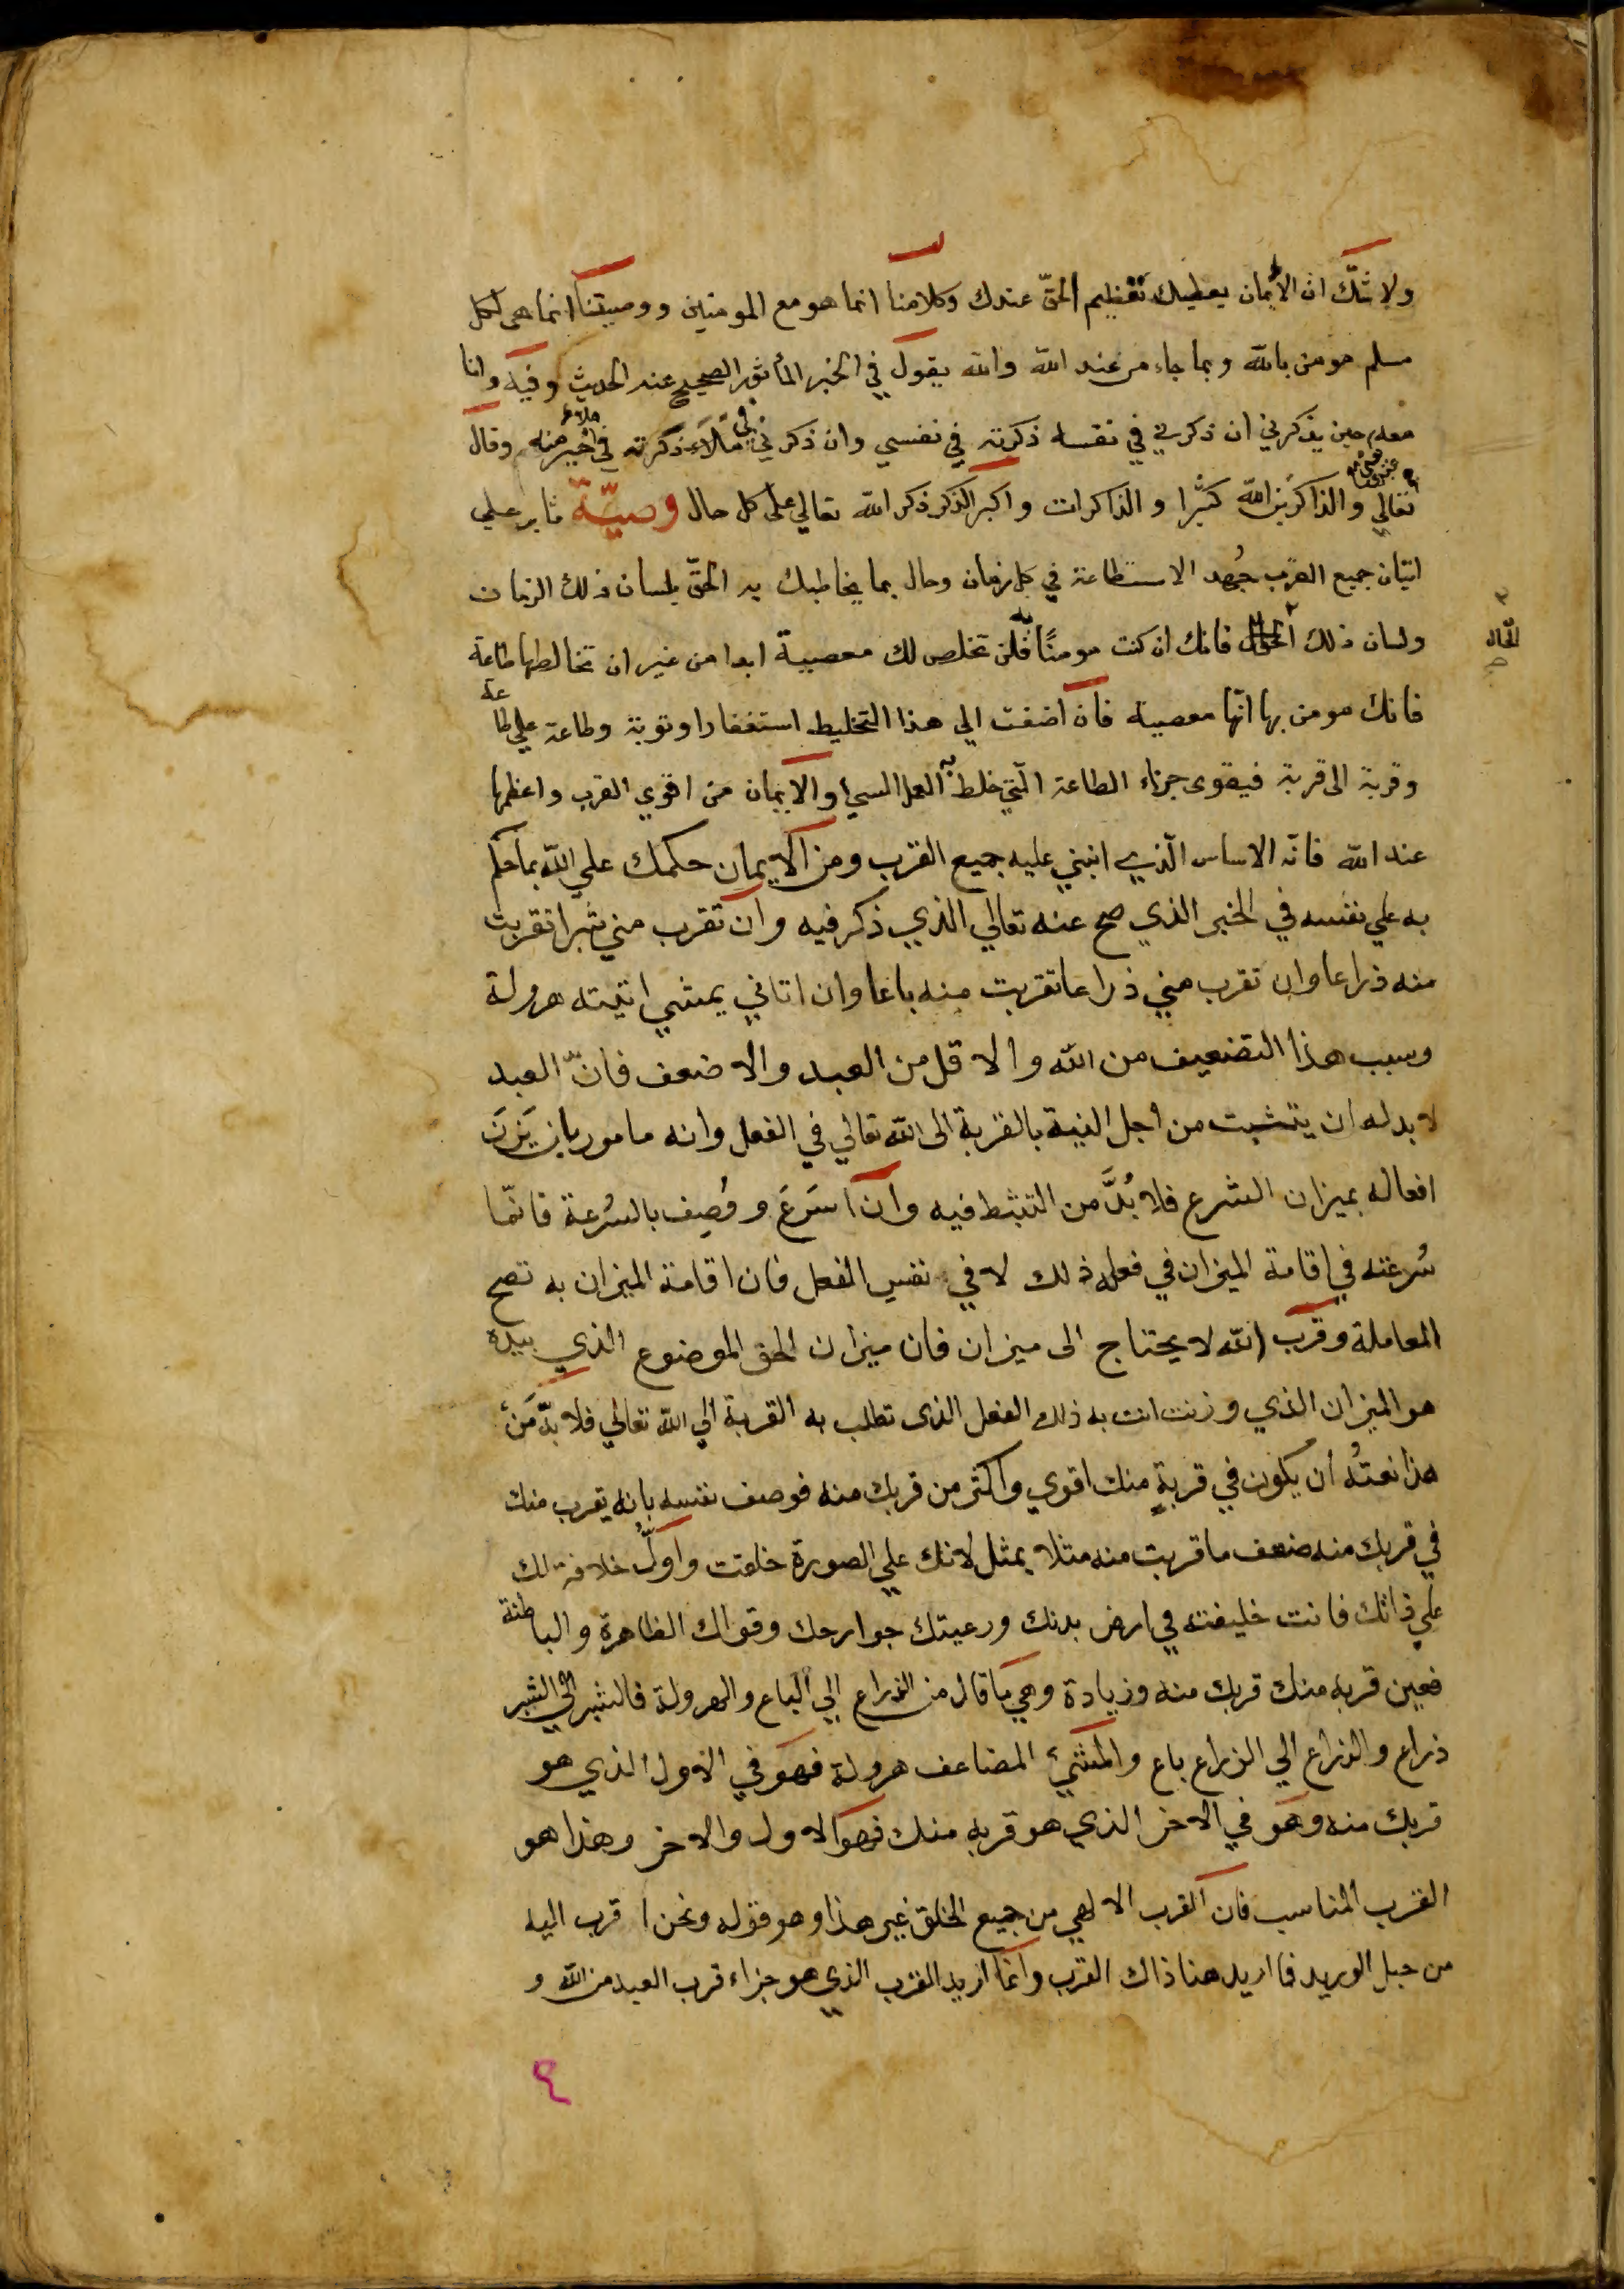 ولا شك ان الايمان يعطيك تعظيم الحق عندك وكلامنا انما هو مع المومنين ووصيتنا انما هي لكل
مسلم مومن بالله وبما جاء من عند الله والله يقول في الخبر المأثور الصحيح عنه الحديث وفيه وانا
معه حين يذكرني ان ذكرني في نفسه ذكرته في نفسي وان ذكرني في ملاء ذكرته في ملاء خير منه وقال
تعالي والذاكرين الله كثيرا والذاكرات واكبر الذكر ذكر الله تعالي علي كل حال وصيّة ثابر علي
اتيان جميع القرب جُهد الاستطاعة في كل زمان وحال بما يخاطبك به الحقّ بلسان ذلك الزمان
ولسان ذلك الحال فانك ان كنت مومنًا فلن تخلص لك معصية ابدا من غير ان تخالطها طاعة
الحال
فانك مومن بها انّها معصية فان اضفت الي هذا التخليط استغفارا وتوبة وطاعة علي طاعة
وقربة الى قربة فيقوى جزاء الطاعة الّتي خلط به العمل السيئ والايمان من اقوي القرب واعظمها
عند الله فانه الاساس الّذي انبني عليه جميع القرب ومن الايمان حكمك علي الله بما حكم
به علي نفسه في الخبر الذي صح عنه تعالي الذي ذكر فيه وان تقرب مني شبرا تقربت
منه ذراعا وان تقرب مني ذراعا تقربت منه باعا وان اتاني يمشي اتيته هرولة
وسبب هذا التضعيف من الله والاقل من العبد والاضعف فانّ العبد
لا بد له ان يتثبت من اجل النية بالقربة الى الله تعالي في الفعل وانه مامور بان يَزِنَ
افعاله بميزان الشرع فلا بُدَّ من التثبط فيه وان اسَرَعَ ووُصِف بالسُرعة فانّما
سُرعته في اقامة الميزان في فعله ذلك لا في نفس الفعل فان اقامة الميزان به تصح
المعاملة وقرب الله لا يحتاج الى ميزان فان ميزان الحق الموضوع الذي بيده
هو الميزان الذي وزنت انت به ذلك الفعل الذى تطلب به القربة الي الله تعالي فلا بدّ مَن
هذا نعتُه أن يكون في قربةٍ منك اقوي واكثر من قربك منه فوصف نفسه بانه يقرب منك
في قربك منه ضعف ما قربت منه مثلا بمثل لانك علي الصورة خلقت واوّلُ خلافة لك
علي ذاتك فانت خليفته في ارض بدنك ورعيتك جوارحك وقواك الظاهرة والباطنة
فعين قربه منك قربك منه وزيادة وهي ما قال من الذراع الي الباع والهرولة فالشبر الي الشبر
ذراع والذراع الي الذراع باع والمشيُ المضاعف هرولة فهو في الاول الذي هو
قربك منه وهو في الاخر الذي هو قربه منك فهو الاول والاخر وهذا هو
القرب المناسب فان القرب الالهي من جميع الخلق غير هذا وهو قوله ونحن اقرب اليه
من حبل الوريد فما اريد هنا ذاك القرب وانما اريد القرب الذي هو جزاء قرب العبد من الله و
٤